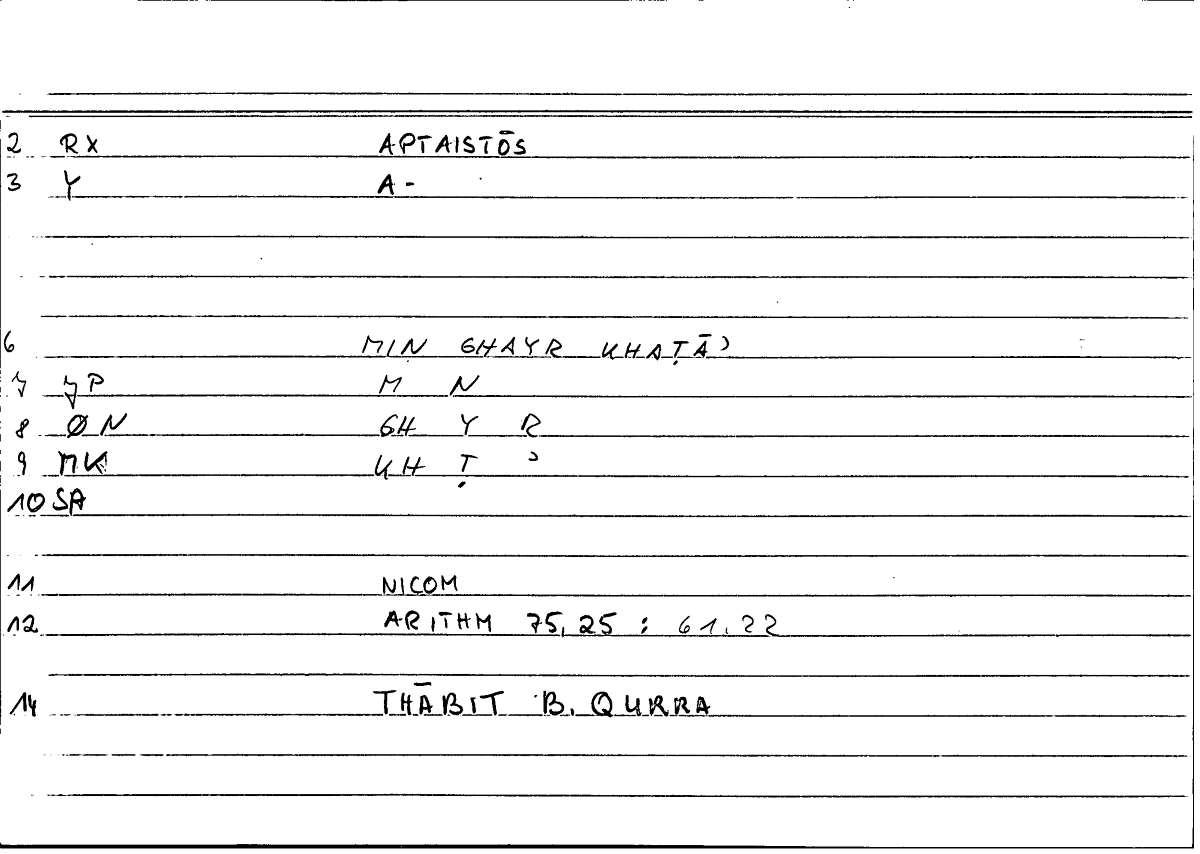 2 RX APTAISTŌS
3 Y A-
6 MIN GHAYR KHAṬĀʾ
7 JP M N
8 ØN GH Y R
9 MK KH Ṭ ʾ
10 SA
11 NICOM
12 ARITHM 75,25 : 61.22
14 THĀBIT B. QURRA